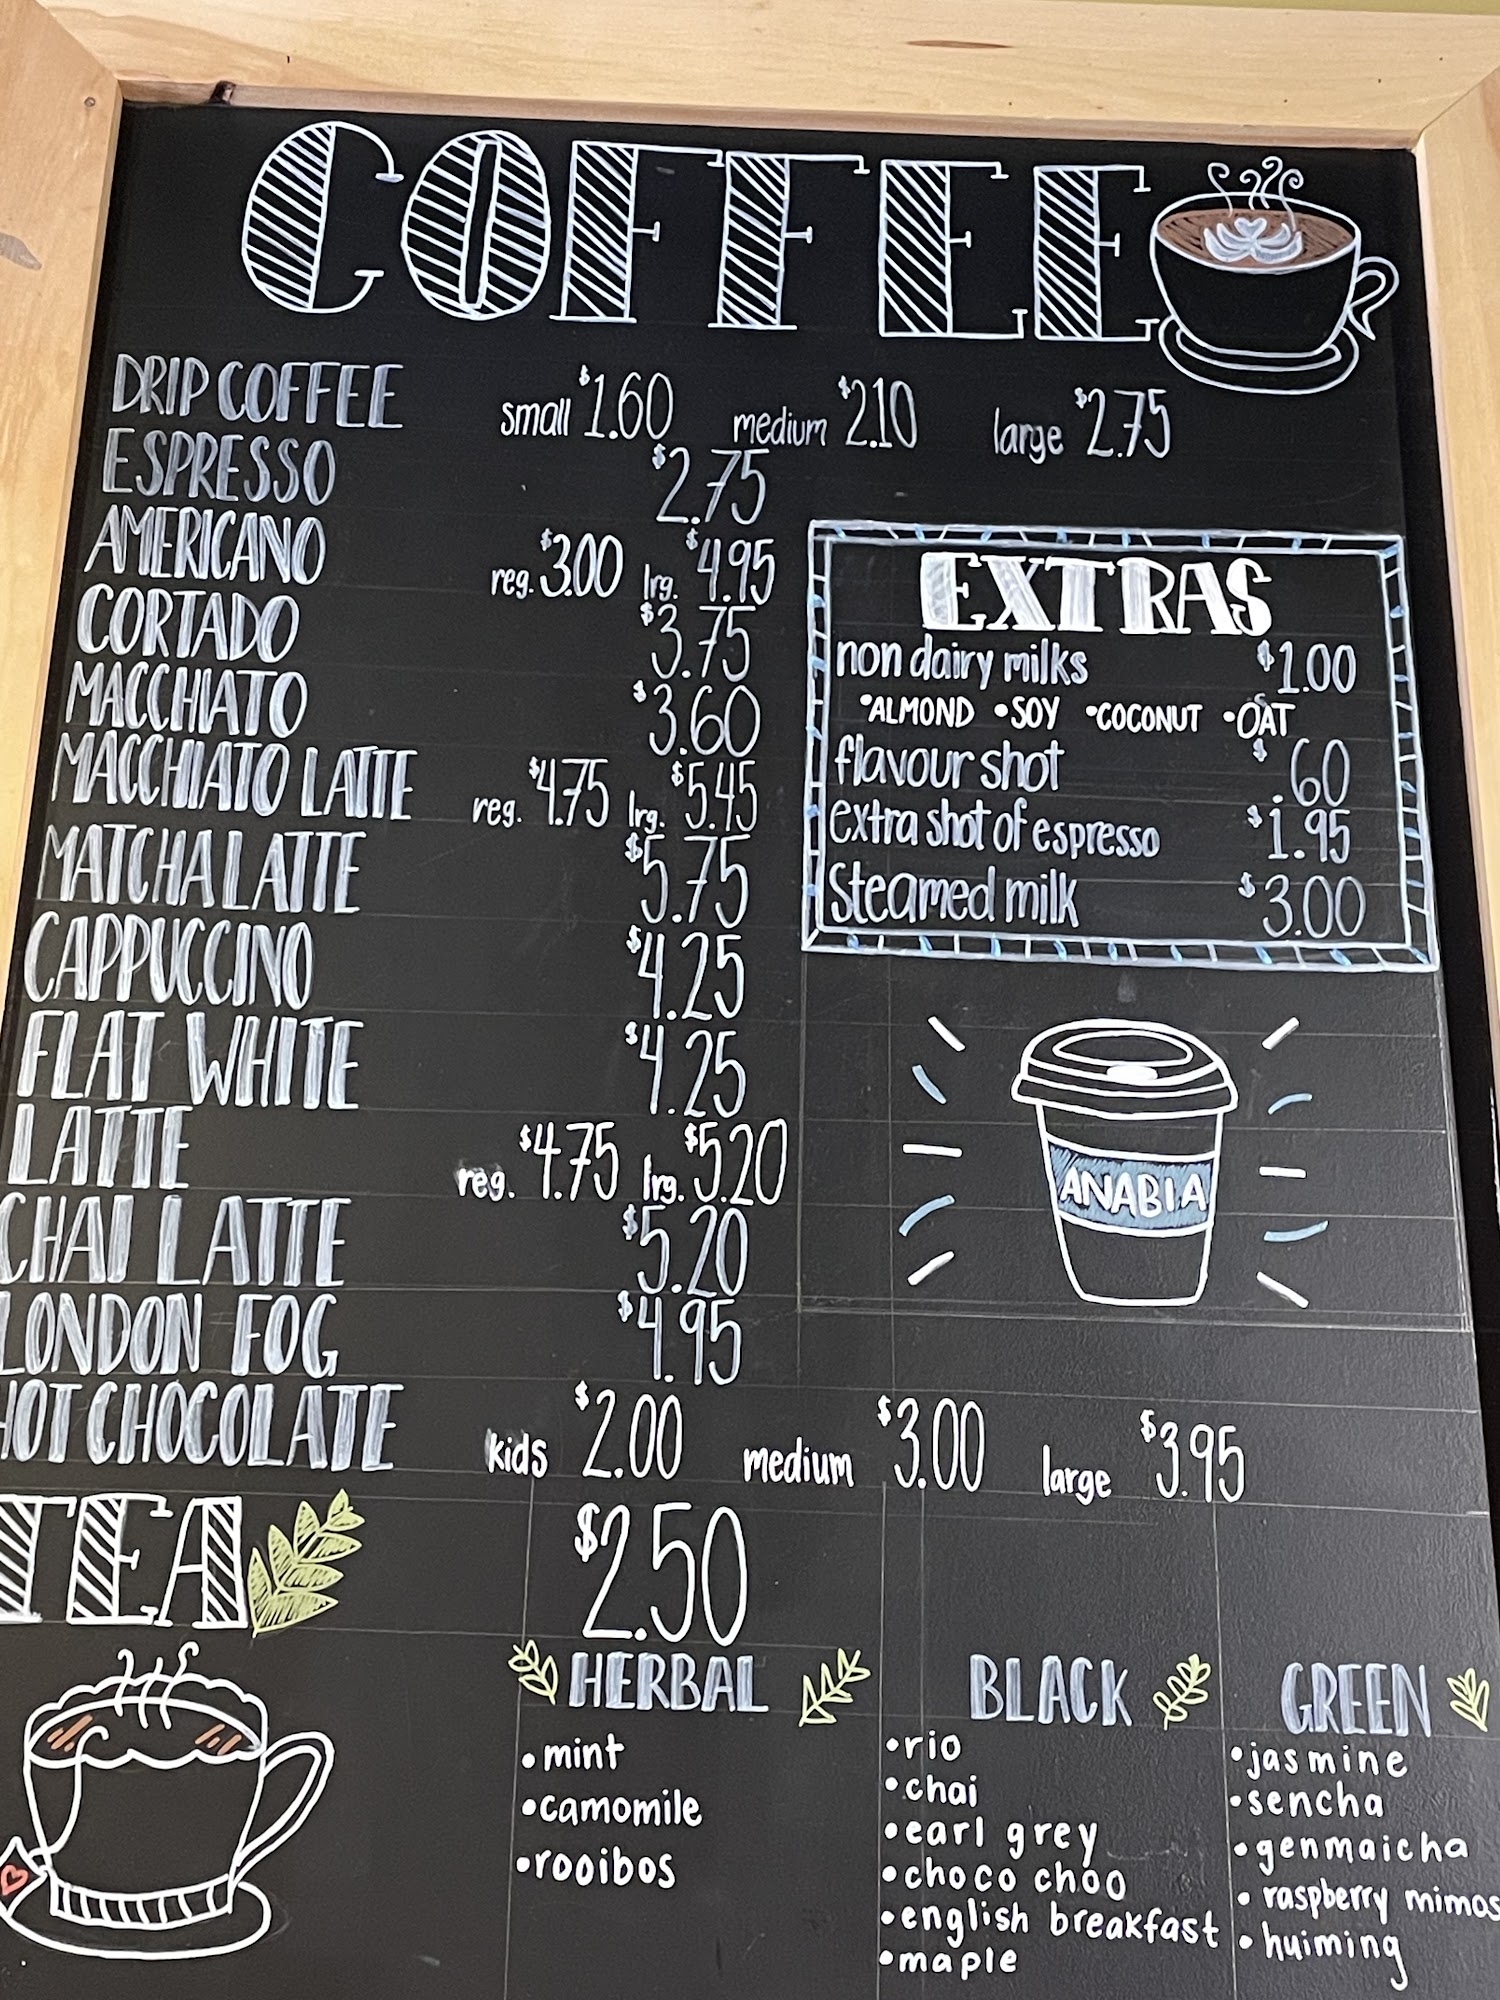 COFFEE
DRIP COFFEE small $1.60 medium $2.10 large $2.75
ESPRESSO $2.75
AMERICANO reg. $3.00 lrg. $4.95
CORTADO $3.75
MACCHIATO $3.60
MACCHIATO LATTE reg. $4.75 lrg. $5.45
MATCHA LATTE $5.75
CAPPUCCINO $4.25
FLAT WHITE $4.25
LATTE reg. $4.75 lrg. $5.20
CHAI LATTE $5.20
LONDON FOG $4.95
HOT CHOCOLATE kids $2.00 medium $3.00 large $3.95
EXTRAS
non dairy milks $1.00
•ALMOND •SOY •COCONUT •OAT
flavour shot $.60
extra shot of espresso $1.95
Steamed milk $3.00
ANABIA
TEA $2.50
HERBAL
•mint
•camomile
•rooibos
BLACK
•rio
•chai
•earl grey
•choco choo
•english breakfast
•maple
GREEN
•jasmine
•sencha
•genmaicha
•raspberry mimos
•huiming